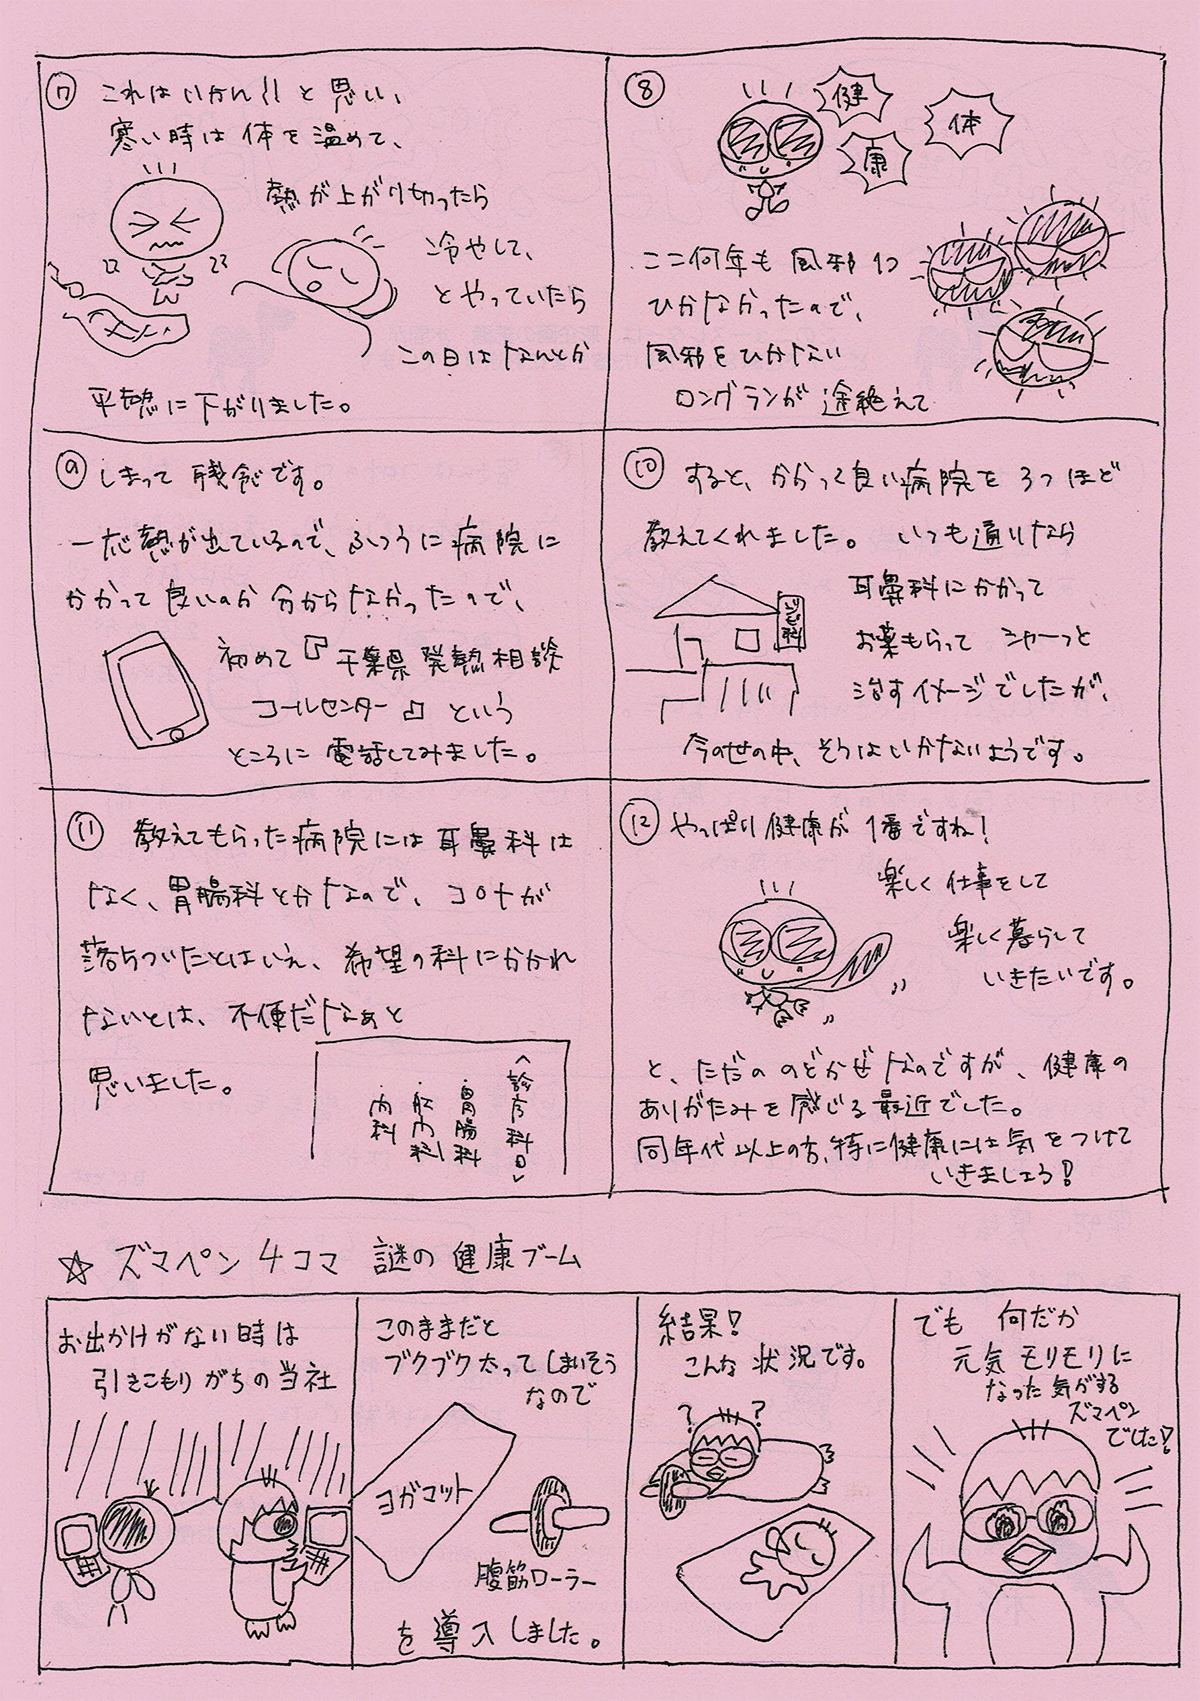 ⑦ これはいかん!!と思い、
寒い時は体を温めて、
熱が上がり切ったら
冷やして、
とやっていたら
この日はなんとか
平熱に下がりました。
⑧
健
康
体
ここ何年も風邪1つ
ひかなかったので、
風邪をひかない
ロングランが途絶えて
⑨ しまって残念です。
一応熱が出ているので、ふつうに病院に
かかって良いのか分からなかったので、
初めて『千葉県発熱相談
コールセンター』という
ところに電話してみました。
⑩ すると、かかって良い病院を3つほど
教えてくれました。いつも通りなら
耳鼻科にかかって
お薬もらってシャーっと
治すイメージでしたが、
今の世の中、そうはいかないようです。
⑪ 教えてもらった病院には耳鼻科は
なく、胃腸科とかなので、コロナが
落ちついたとはいえ、希望の科にかかれ
ないとは、不便だなぁと
思いました。
<診療科目>
・胃腸科
・肛門科
・内科
⑫ やっぱり健康が1番ですね!
楽しく仕事をして
楽しく暮らして
いきたいです。
と、ただののどかぜなのですが、健康の
ありがたみを感じる最近でした。
同年代以上の方、特に健康には気をつけて
いきましょう!
☆ ズマペン4コマ 謎の健康ブーム
お出かけがない時は
引きこもりがちの当社
このままだと
ブクブク太ってしまいそう
なので
ヨガマット
腹筋ローラー
を導入しました。
結果!
こんな状況です。
? ?
でも何だか
元気モリモリに
なった気がする
ズマペン
でした!